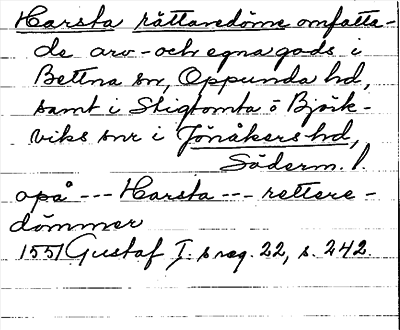 Harsta rättaredöme omfatta-
de arv- och egna gods i
Bettna sn, Oppunda hd,
samt i Stigtomta o Björk-
viks snr i Jönåkers hd,
Söderm. l.
opå --- Harsta --- rettere-
dömmer
1551 Gustaf I. s reg. 22, s. 242.